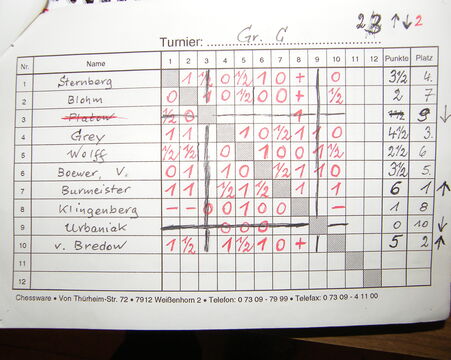 23 ↑↓2
Turnier: Gr. C
Nr. Name 1 2 3 4 5 6 7 8 9 10 11 12 Punkte Platz
1 Sternberg 1 ½ 0 ½ 1 0 + 0 3½ 4.
2 Blohm 0 1 0 ½ 0 0 + ½ 2 7
3 Platow ½ 0 1 9 ↓
4 Grey 1 1 1 0 ½ 1 1 0 4½ 3.
5 Wolff ½ ½ 0 1 0 0 1 ½ 2½ 6.
6 Boewer, V. 0 1 1 0 ½ 1 1 0 3½ 5.
7 Burmeister 1 1 ½ 1 ½ 1 1 6 1 ↑
8 Klingenberg – – 0 0 1 0 0 – 1 8
9 Urbaniak 0 0 0 0 10 ↓
10 v. Bredow 1 ½ 1 ½ 1 0 + 5 2 ↑
11
12
Chessware • Von Thürheim-Str. 72 • 7912 Weißenhorn 2 • Telefon: 0 73 09 - 79 99 • Telefax: 0 73 09 - 4 11 00